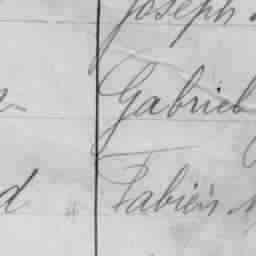 Joseph
Gabriel
d Fabien